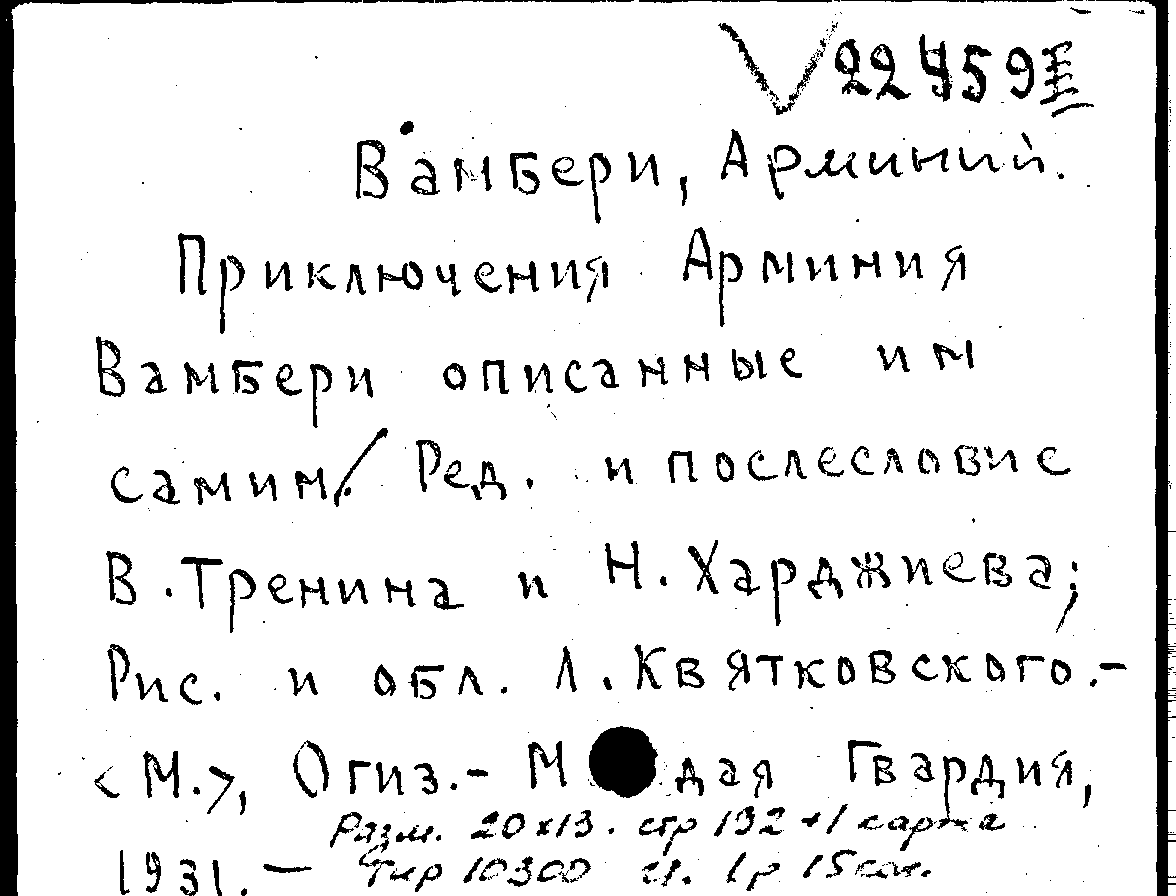 22459 III
Вамбери, Арминий.
Приключения Арминия
Вамбери описанные им
самим/. Ред. и послесловие
В. Тренина и Н. Харджиева;
Рис. и обл. Л. Квятковского.-
<М.>, Огиз.- М дая Гвардия,
Разм. 20х13. стр 192+1 карта
1931. — Тир 10300 ц. 1р 15коп.